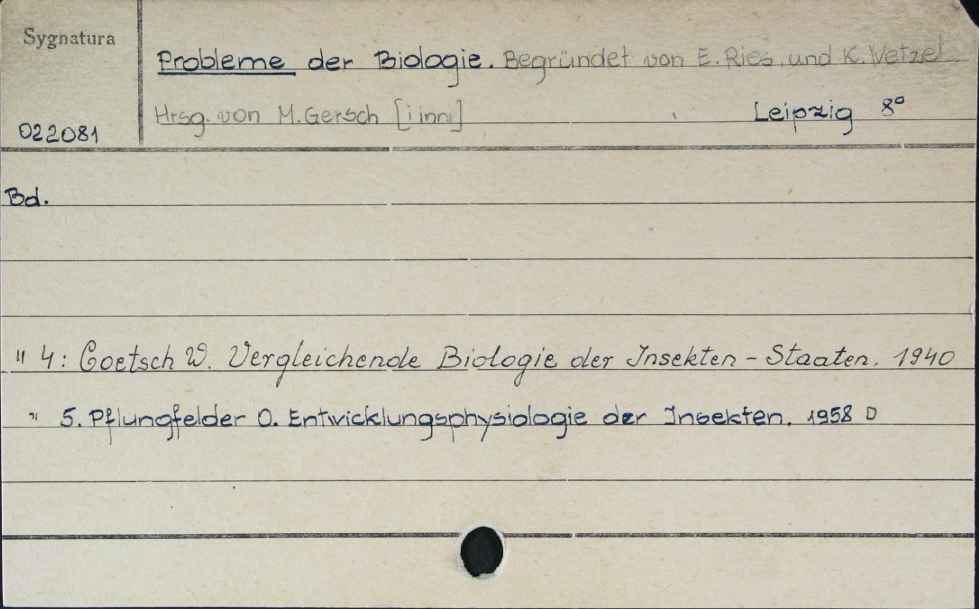 Sygnatura
Probleme der Biologie. Begründet von E. Ries und K. Wetzel.
Hrsg. von M. Gersch [i inni] Leipzig 8°
022081
Bd.
" 4: Goetsch W. Vergleichende Biologie der Insekten-Staaten. 1940
" 5. Pflungfelder O. Entwicklungsphysiologie der Insekten. 1958 D